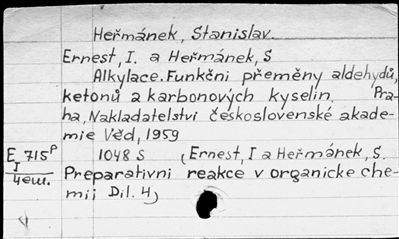 Heřmánek, Stanislav
Ernest, I. a Heřmánek, S
Alkylace. Funkčni přeměny aldehydů,
ketonů a karbonových kyselin. Pra-
ha, Nakladatelstvi československé akade-
mie Věd, 1959
E 715ᵖ 1048 S (Ernest, I a Heřmánek, S.
I
Preparativni reakce v organicke che-
mii Dil. 4)